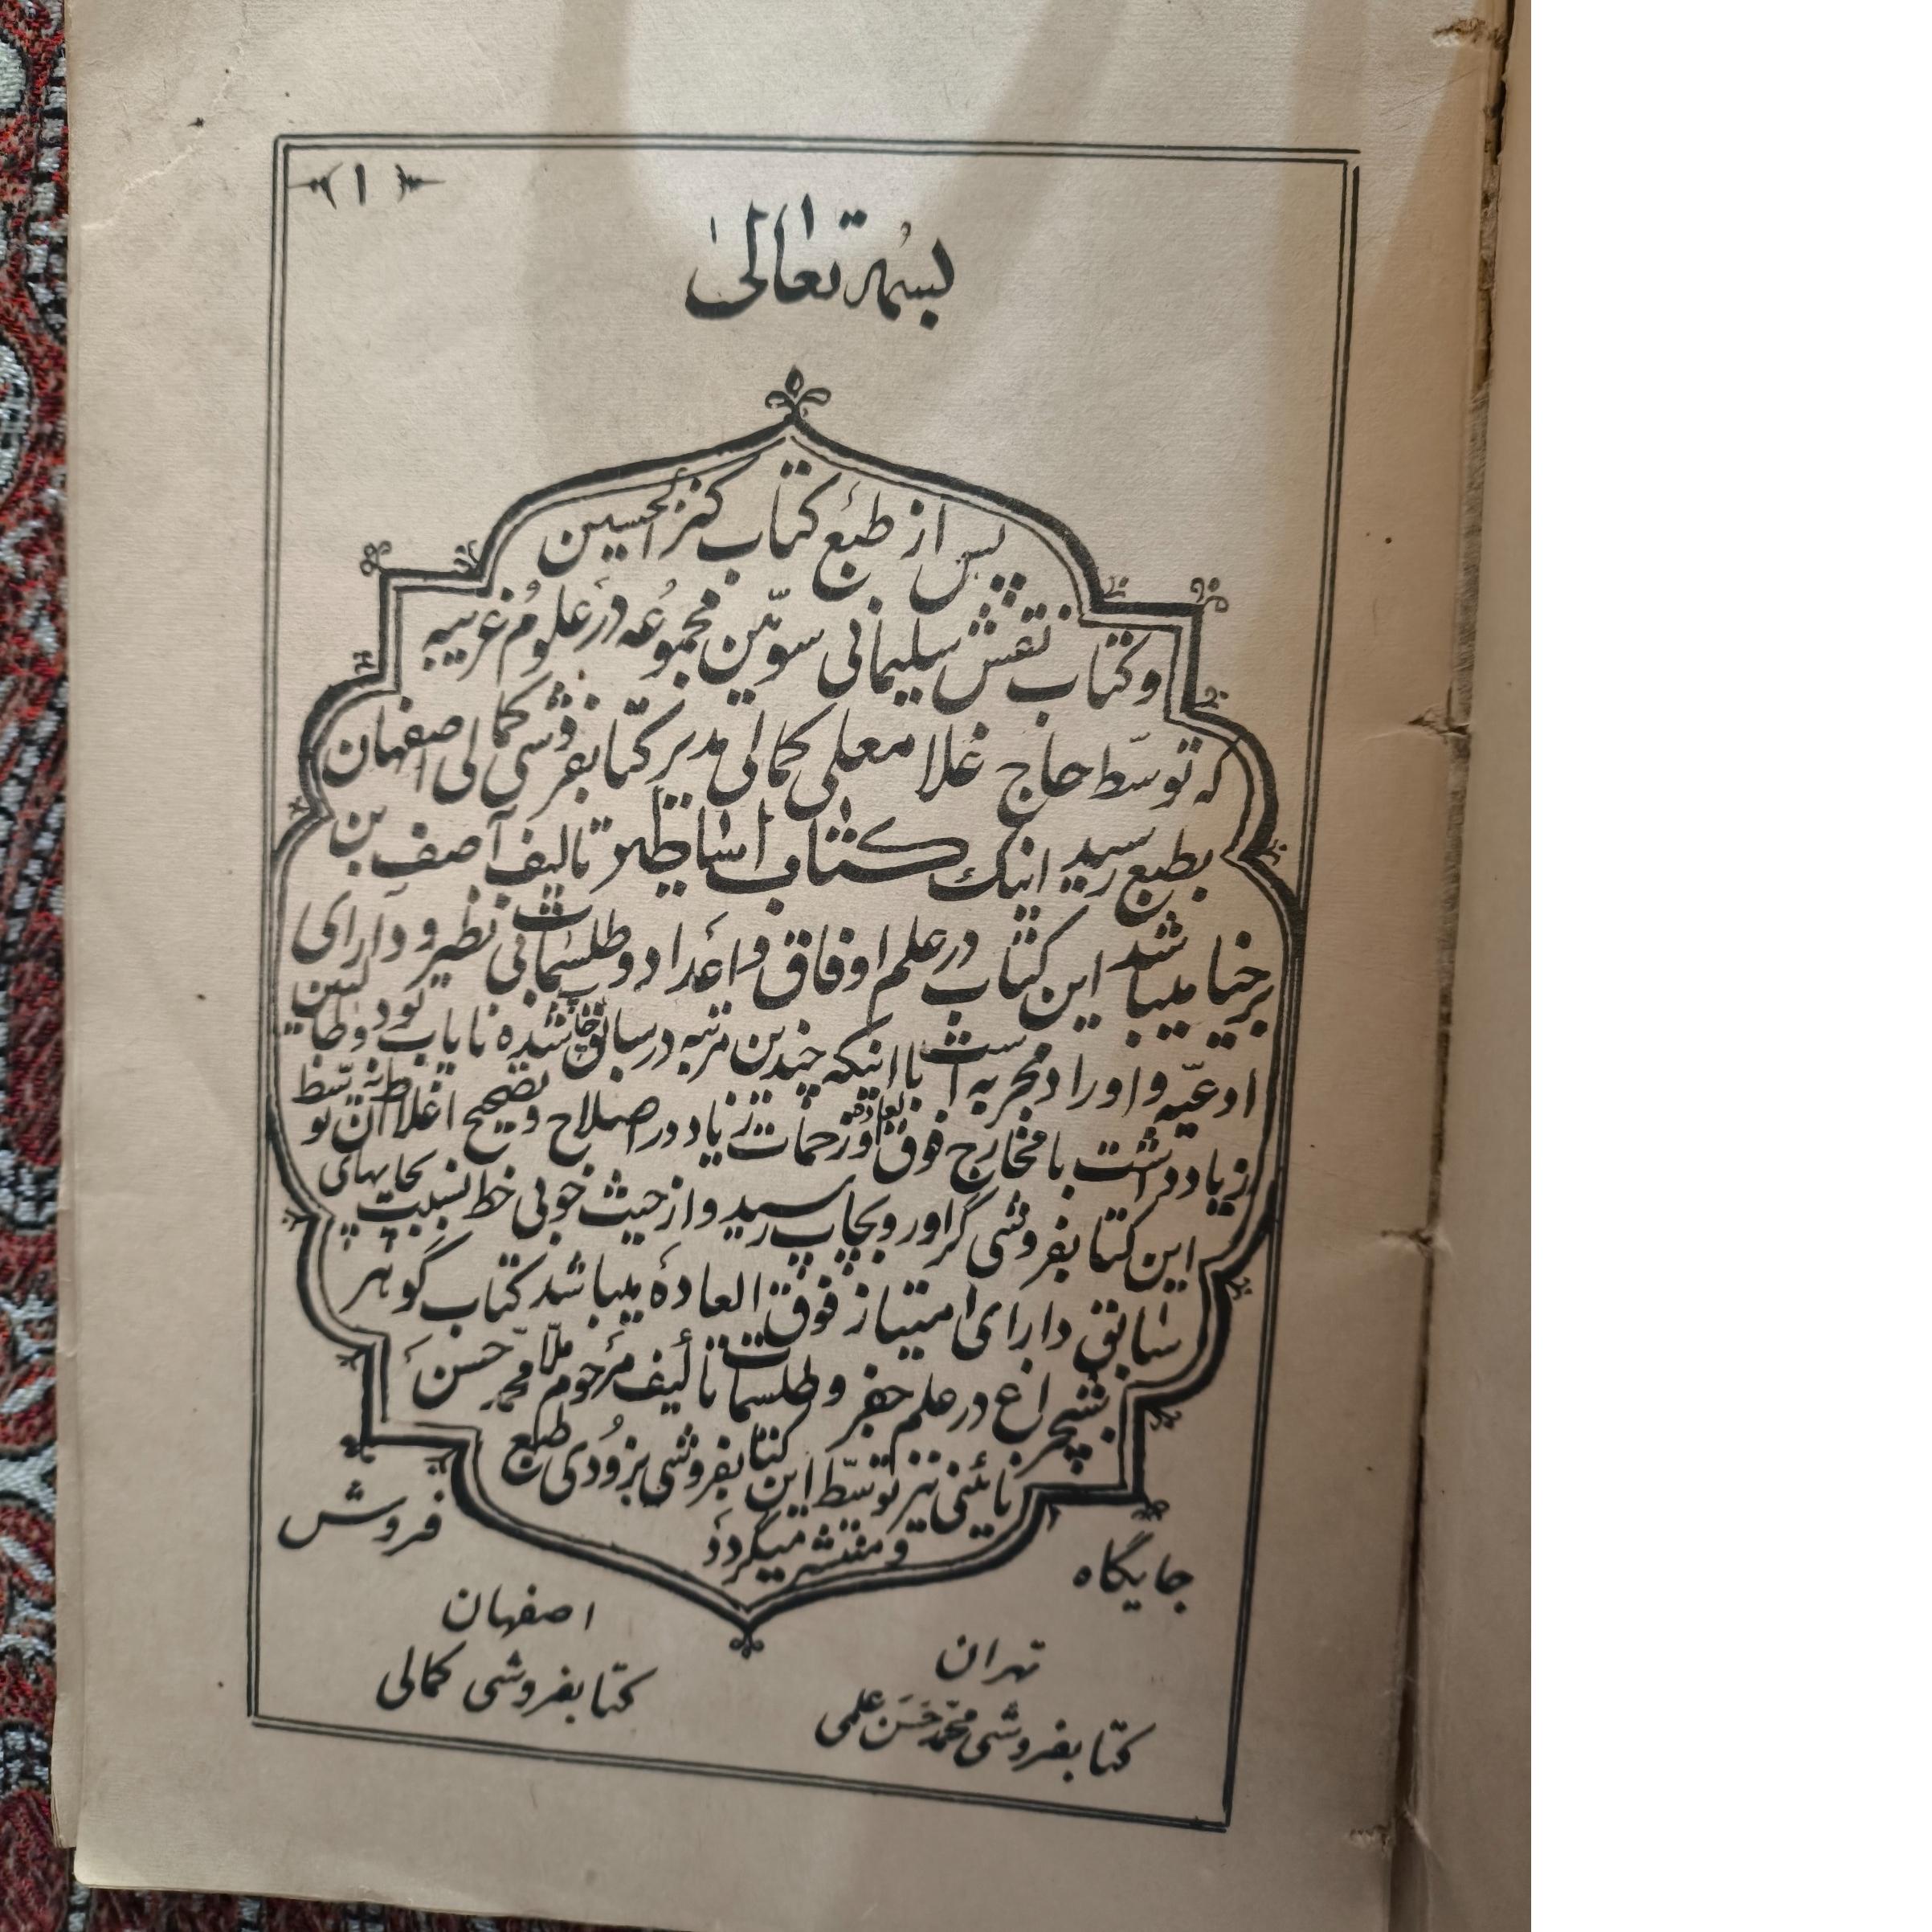 ﴿۱﴾
بسمه تعالی
پس از طبع کتاب کنز الحسین
و کتاب نقش سلیمانی سومّین مجموعه در علوم غریبه
که توسّط حاج غلامعلی کمالی مدیر کتابفروشی کمالی اصفهان
بطبع رسید اینک کتاب اساطیر تالیف آصف بن
برخیا میباشد این کتاب در علم اوفاق و اعداد و طلسمات بی نظیر و دارای
ادعیّه و اوراد مجربه است با اینکه چندین مرتبه در سابق چاپ شده نایاب بود و طالبین
زیاد داشت با مخارج فوق العاده و زحمات زیاد در اصلاح و تصحیح اغلاط آن توسّط
این کتابفروشی گراور و بچاپ رسید و از حیث خوبی خط نسبت بچاپهای
سابق دارای امتیاز فوق العاده میباشد کتاب گوهر
شبچراغ در علم جفر و طلسمات تألیف مرحوم ملّا محمّد حسن
نائینی نیز توسّط این کتابفروشی بزودی طبع
و منتشر میگردد
جایگاه فروش
تهران
کتابفروشی محمّد حَسَن علمی
اصفهان
کتابفروشی کمالی